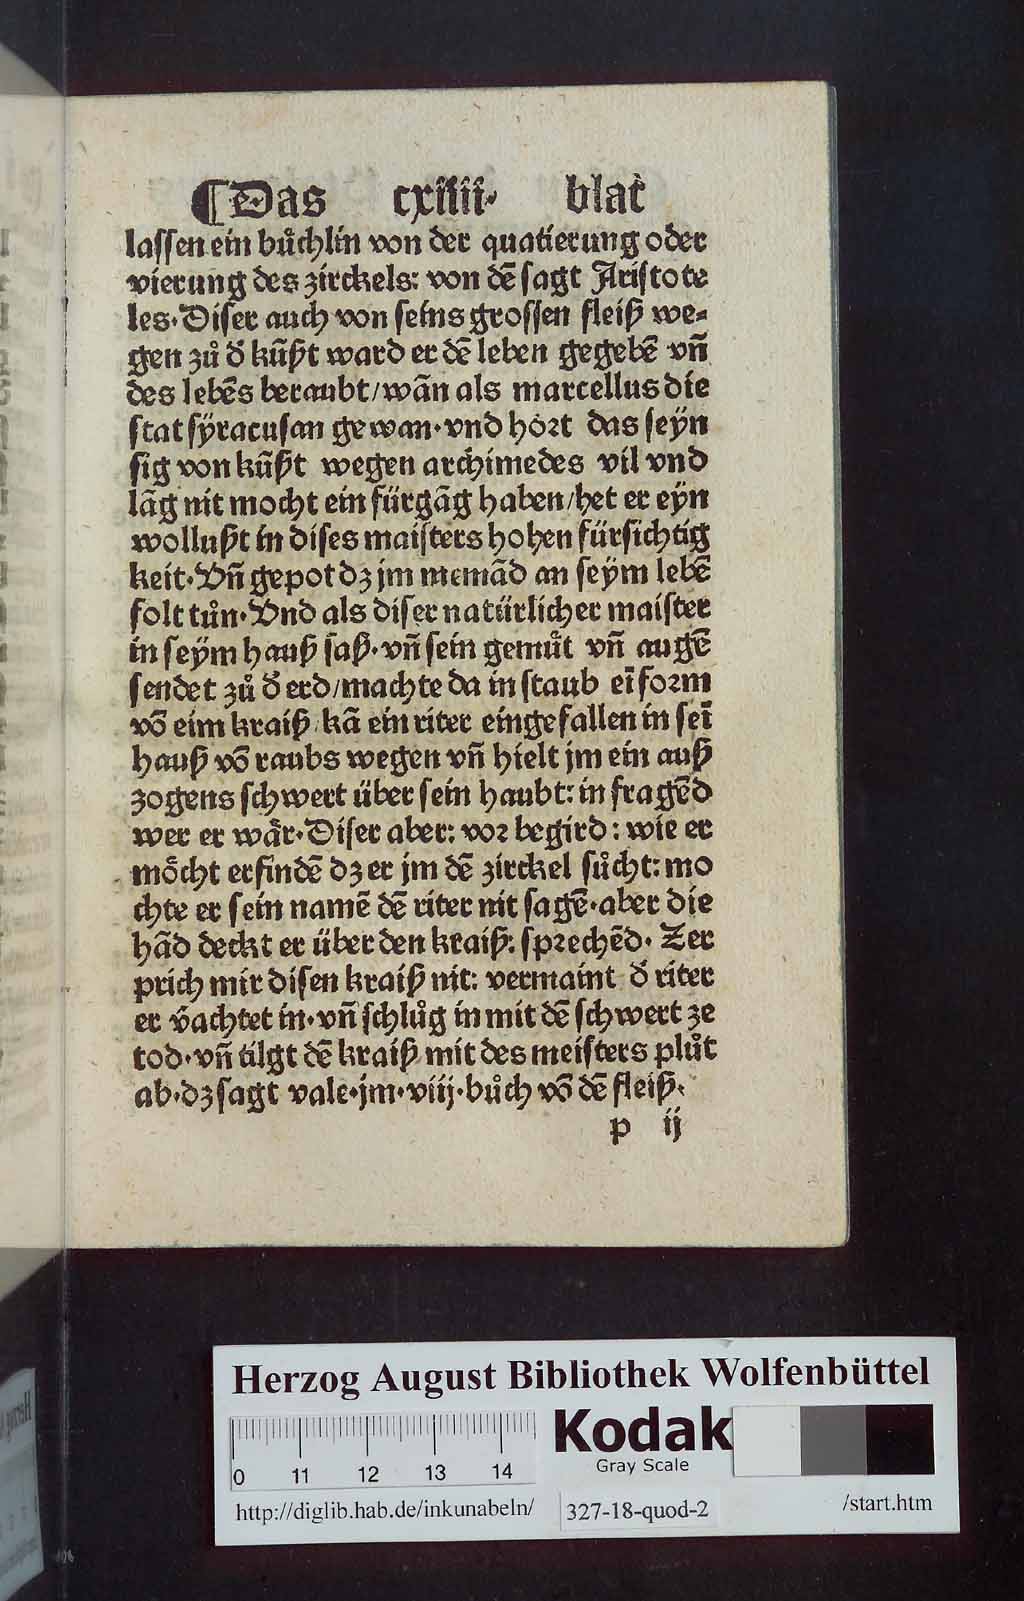 ¶Das cxiiii· blat
lassen ein bůchlin von der quatierung oder
vierung des zirckels: von dē sagt Aristote
les·Diser auch von seins grossen fleiß we⸗
gen zů đ kūßt ward er dē leben gegebē vn̄
des lebēs beraubt/wān als marcellus die
stat sÿracusan gewan·vnd hört das seÿn
sig von kūßt wegen archimedes vil vnd
lāg nit mocht ein fürgāg haben/het er eÿn
wollußt in dises maisters hohen fürsichtig
keit·Vn̄ gepot dz jm niemād an seÿm lebē
solt tůn·Vnd als diser natürlicher maister
in seÿm hauß saß·vn̄ sein gemůt vn̄ augē
sendet zů đ erd/machte da in staub eī form
vō eim kraiß/kā ein riter eingefallen in seī
hauß vō raubs wegen vn̄ hielt jm ein auß
zogens schwert über sein haubt: in fragēd
wer er wär·Diser aber: vor begird: wie er
möcht erfindē dz er jm dē zirckel sůcht: mo
chte er sein namē dē riter nit sagē·aber die
hād deckt er über den kraiß: sprechēd· Zer
prich mir disen kraiß nit: vermaint đ riter
er v̄achtet in·vn̄ schlůg in mit dē schwert ze
tod·vn̄ tilgt dē kraiß mit des meisters plůt
ab·dz sagt vale·jm·viij·bůch vō dē fleiß·
p ij
Herzog August Bibliothek Wolfenbüttel
0 11 12 13 14
Kodak
Gray Scale
http://diglib.hab.de/inkunabeln/
327-18-quod-2
/start.htm